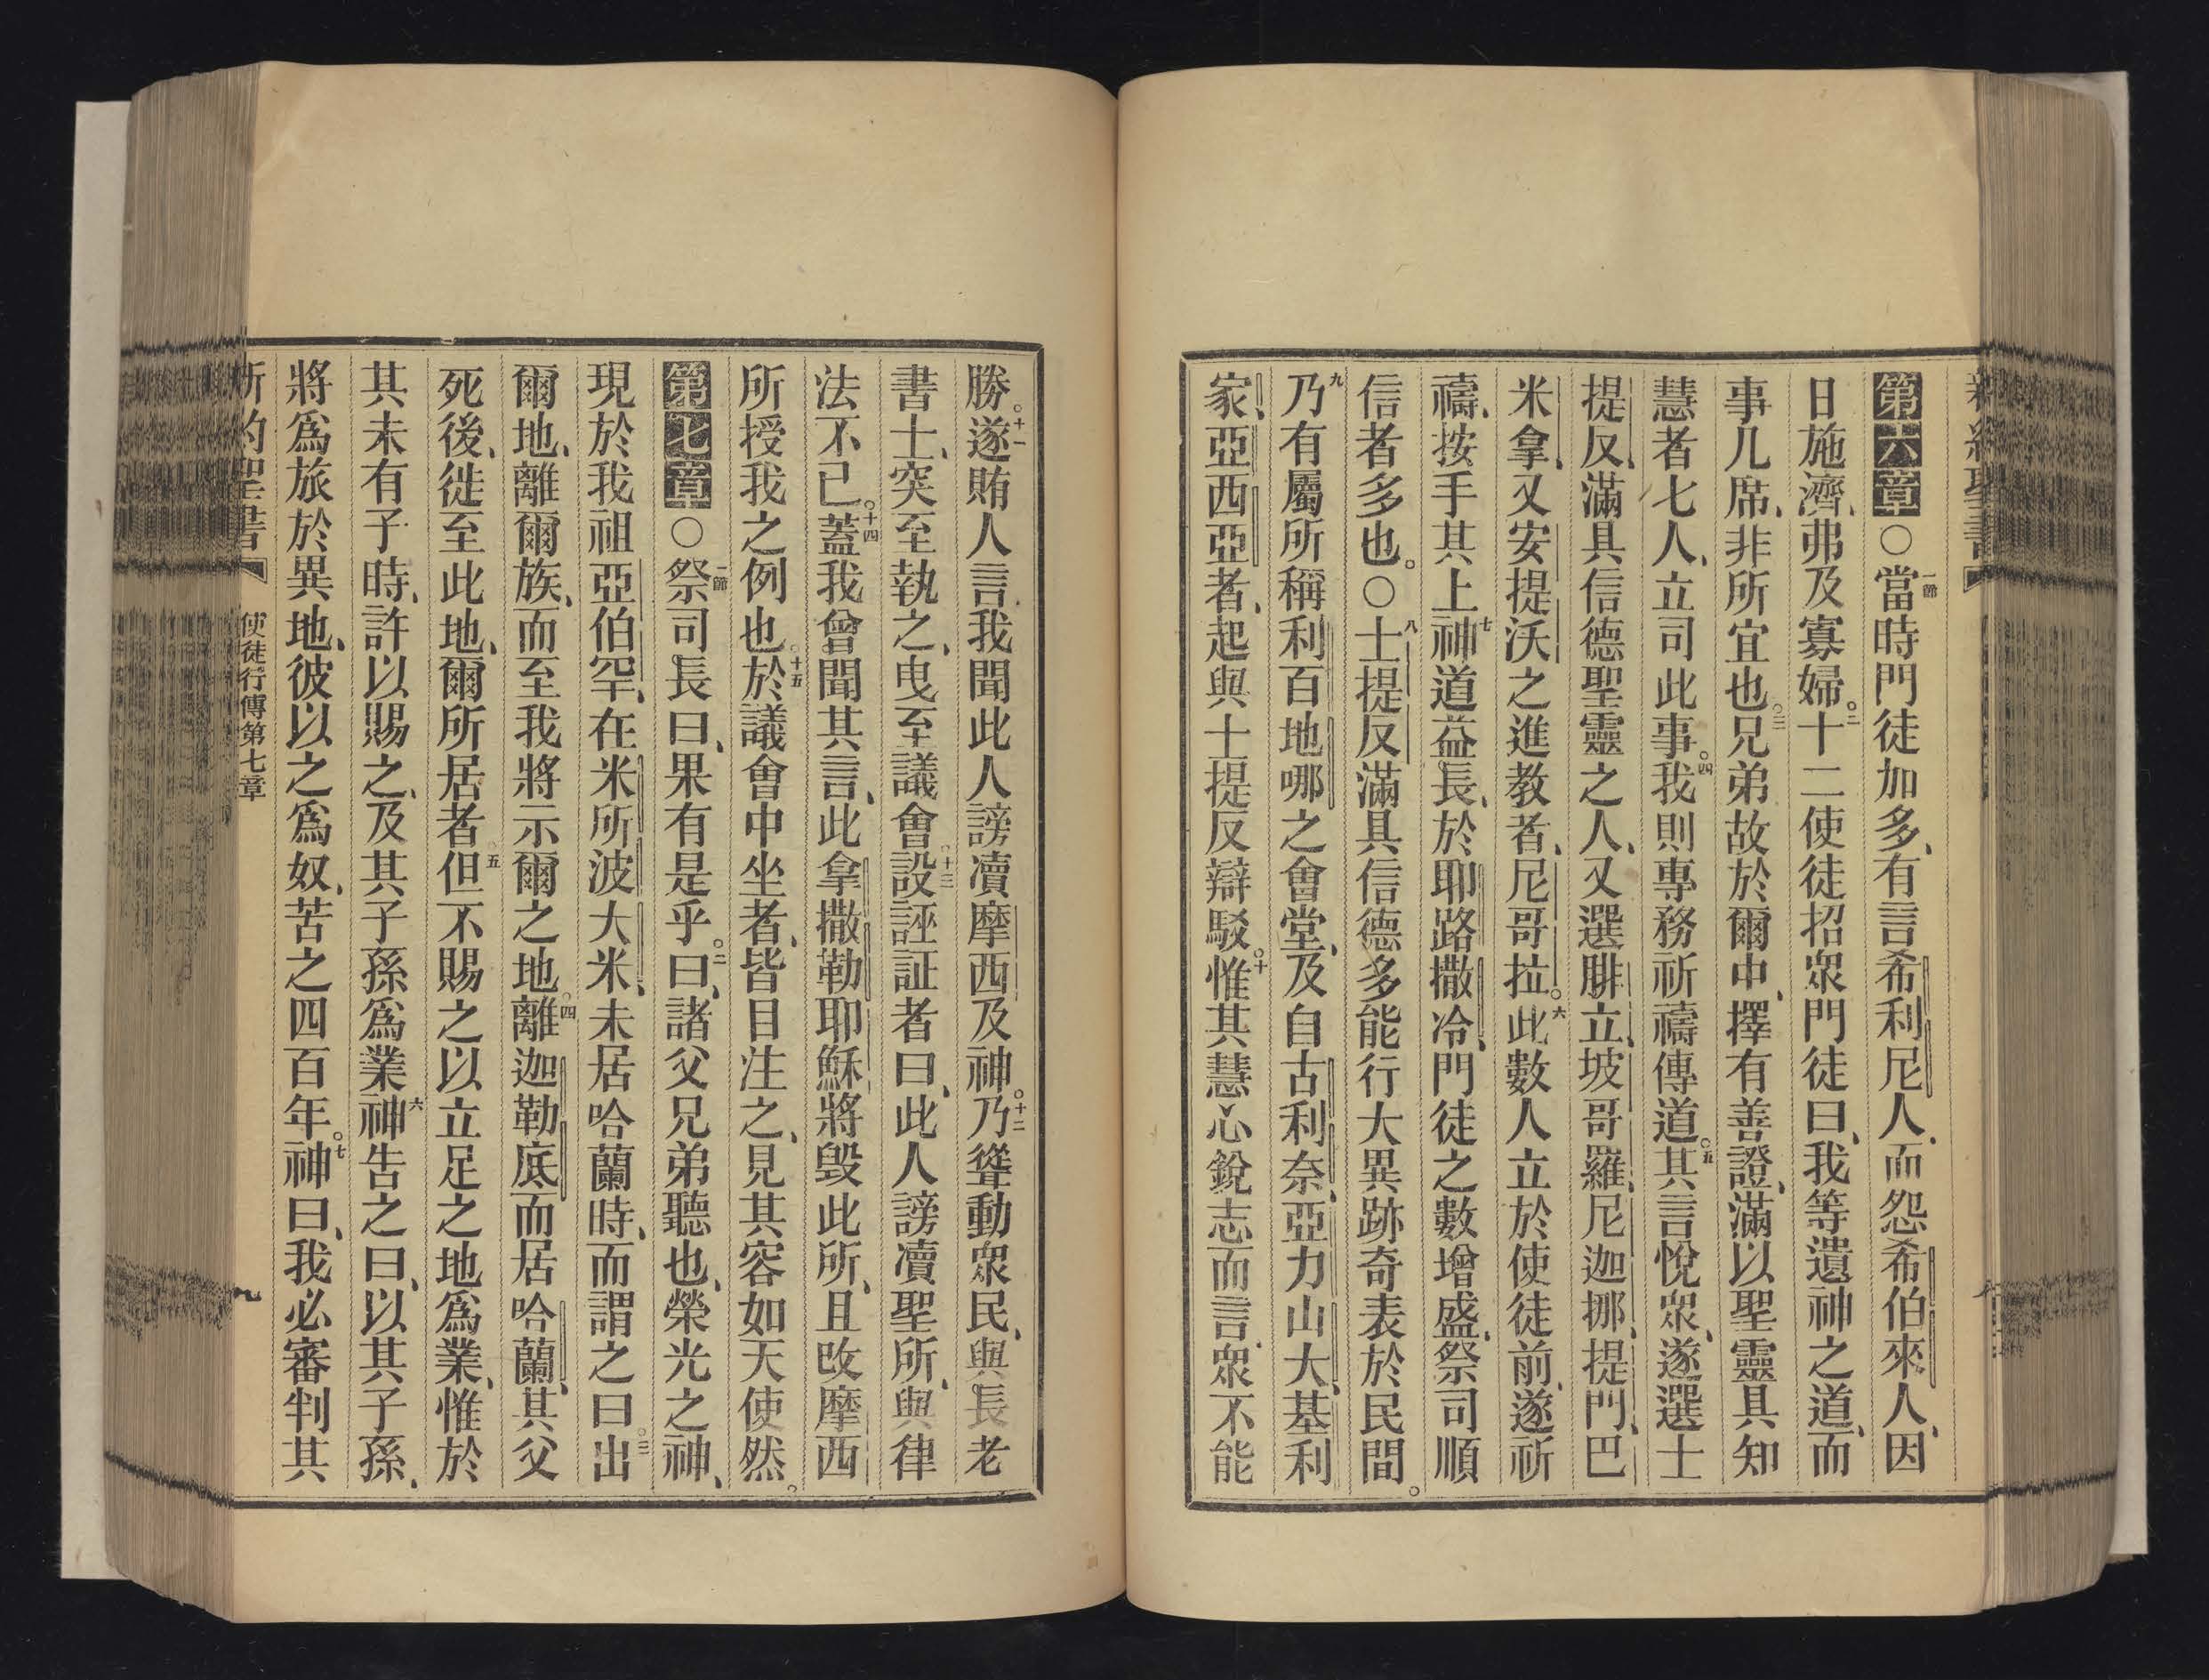 第六章○一節當時門徒加多、有言希利尼人、而怨希伯來人、因
日施濟、弗及寡婦。二十二使徒招眾門徒曰、我等遺神之道、而
事几席、非所宜也。三兄弟故於爾中、擇有善證、滿以聖靈具知
慧者七人、立司此事。四我則專務祈禱傳道。五其言悅眾、遂選士
提反、滿具信德聖靈之人、又選腓立、坡哥羅、尼迦挪、提門、巴
米拿、又安提沃之進教者、尼哥拉。六此數人立於使徒前、遂祈
禱、按手其上七神道益長、於耶路撒冷、門徒之數增盛、祭司順
信者多也。○八士提反滿具信德多能行大異跡奇表於民間。
九乃有屬所稱利百地哪之會堂、及自古利奈、亞力山大、基利
家、亞西亞者、起與士提反辯駁。十惟其慧心銳志而言、眾不能
勝。十一遂賄人言我聞此人謗瀆摩西及神。十二乃聳動眾民、與長老
書士、突至執之、曳至議會。十三設誣証者曰、此人謗瀆聖所、與律
法不已。十四蓋我曾聞其言、此拿撒勒耶穌將毀此所、且改摩西
所授我之例也。十五於議會中坐者、皆目注之、見其容如天使然。
第七章○一節祭司長曰、果有是乎。二曰、諸父兄弟聽也、榮光之神、
現於我祖亞伯罕、在米所波大米、未居哈蘭時、而謂之曰。三出
爾地、離爾族、而至我將示爾之地。四離迦勒底而居哈蘭、其父
死後、徙至此地、爾所居者。五但不賜之以立足之地為業、惟於
其未有子時、許以賜之、及其子孫為業六神告之曰、以其子孫、
將為旅於異地、彼以之為奴、苦之四百年。七神曰、我必審判其
使徒行傳第七章
九